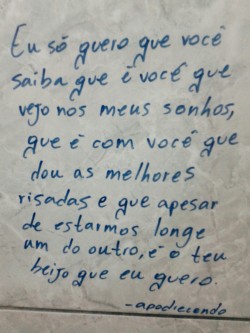 Eu só quero que você
saiba que é você que
vejo nos meus sonhos,
que é com você que
dou as melhores
risadas e que apesar
de estarmos longe
um do outro, é o teu
beijo que eu quero.
- apodrecendo